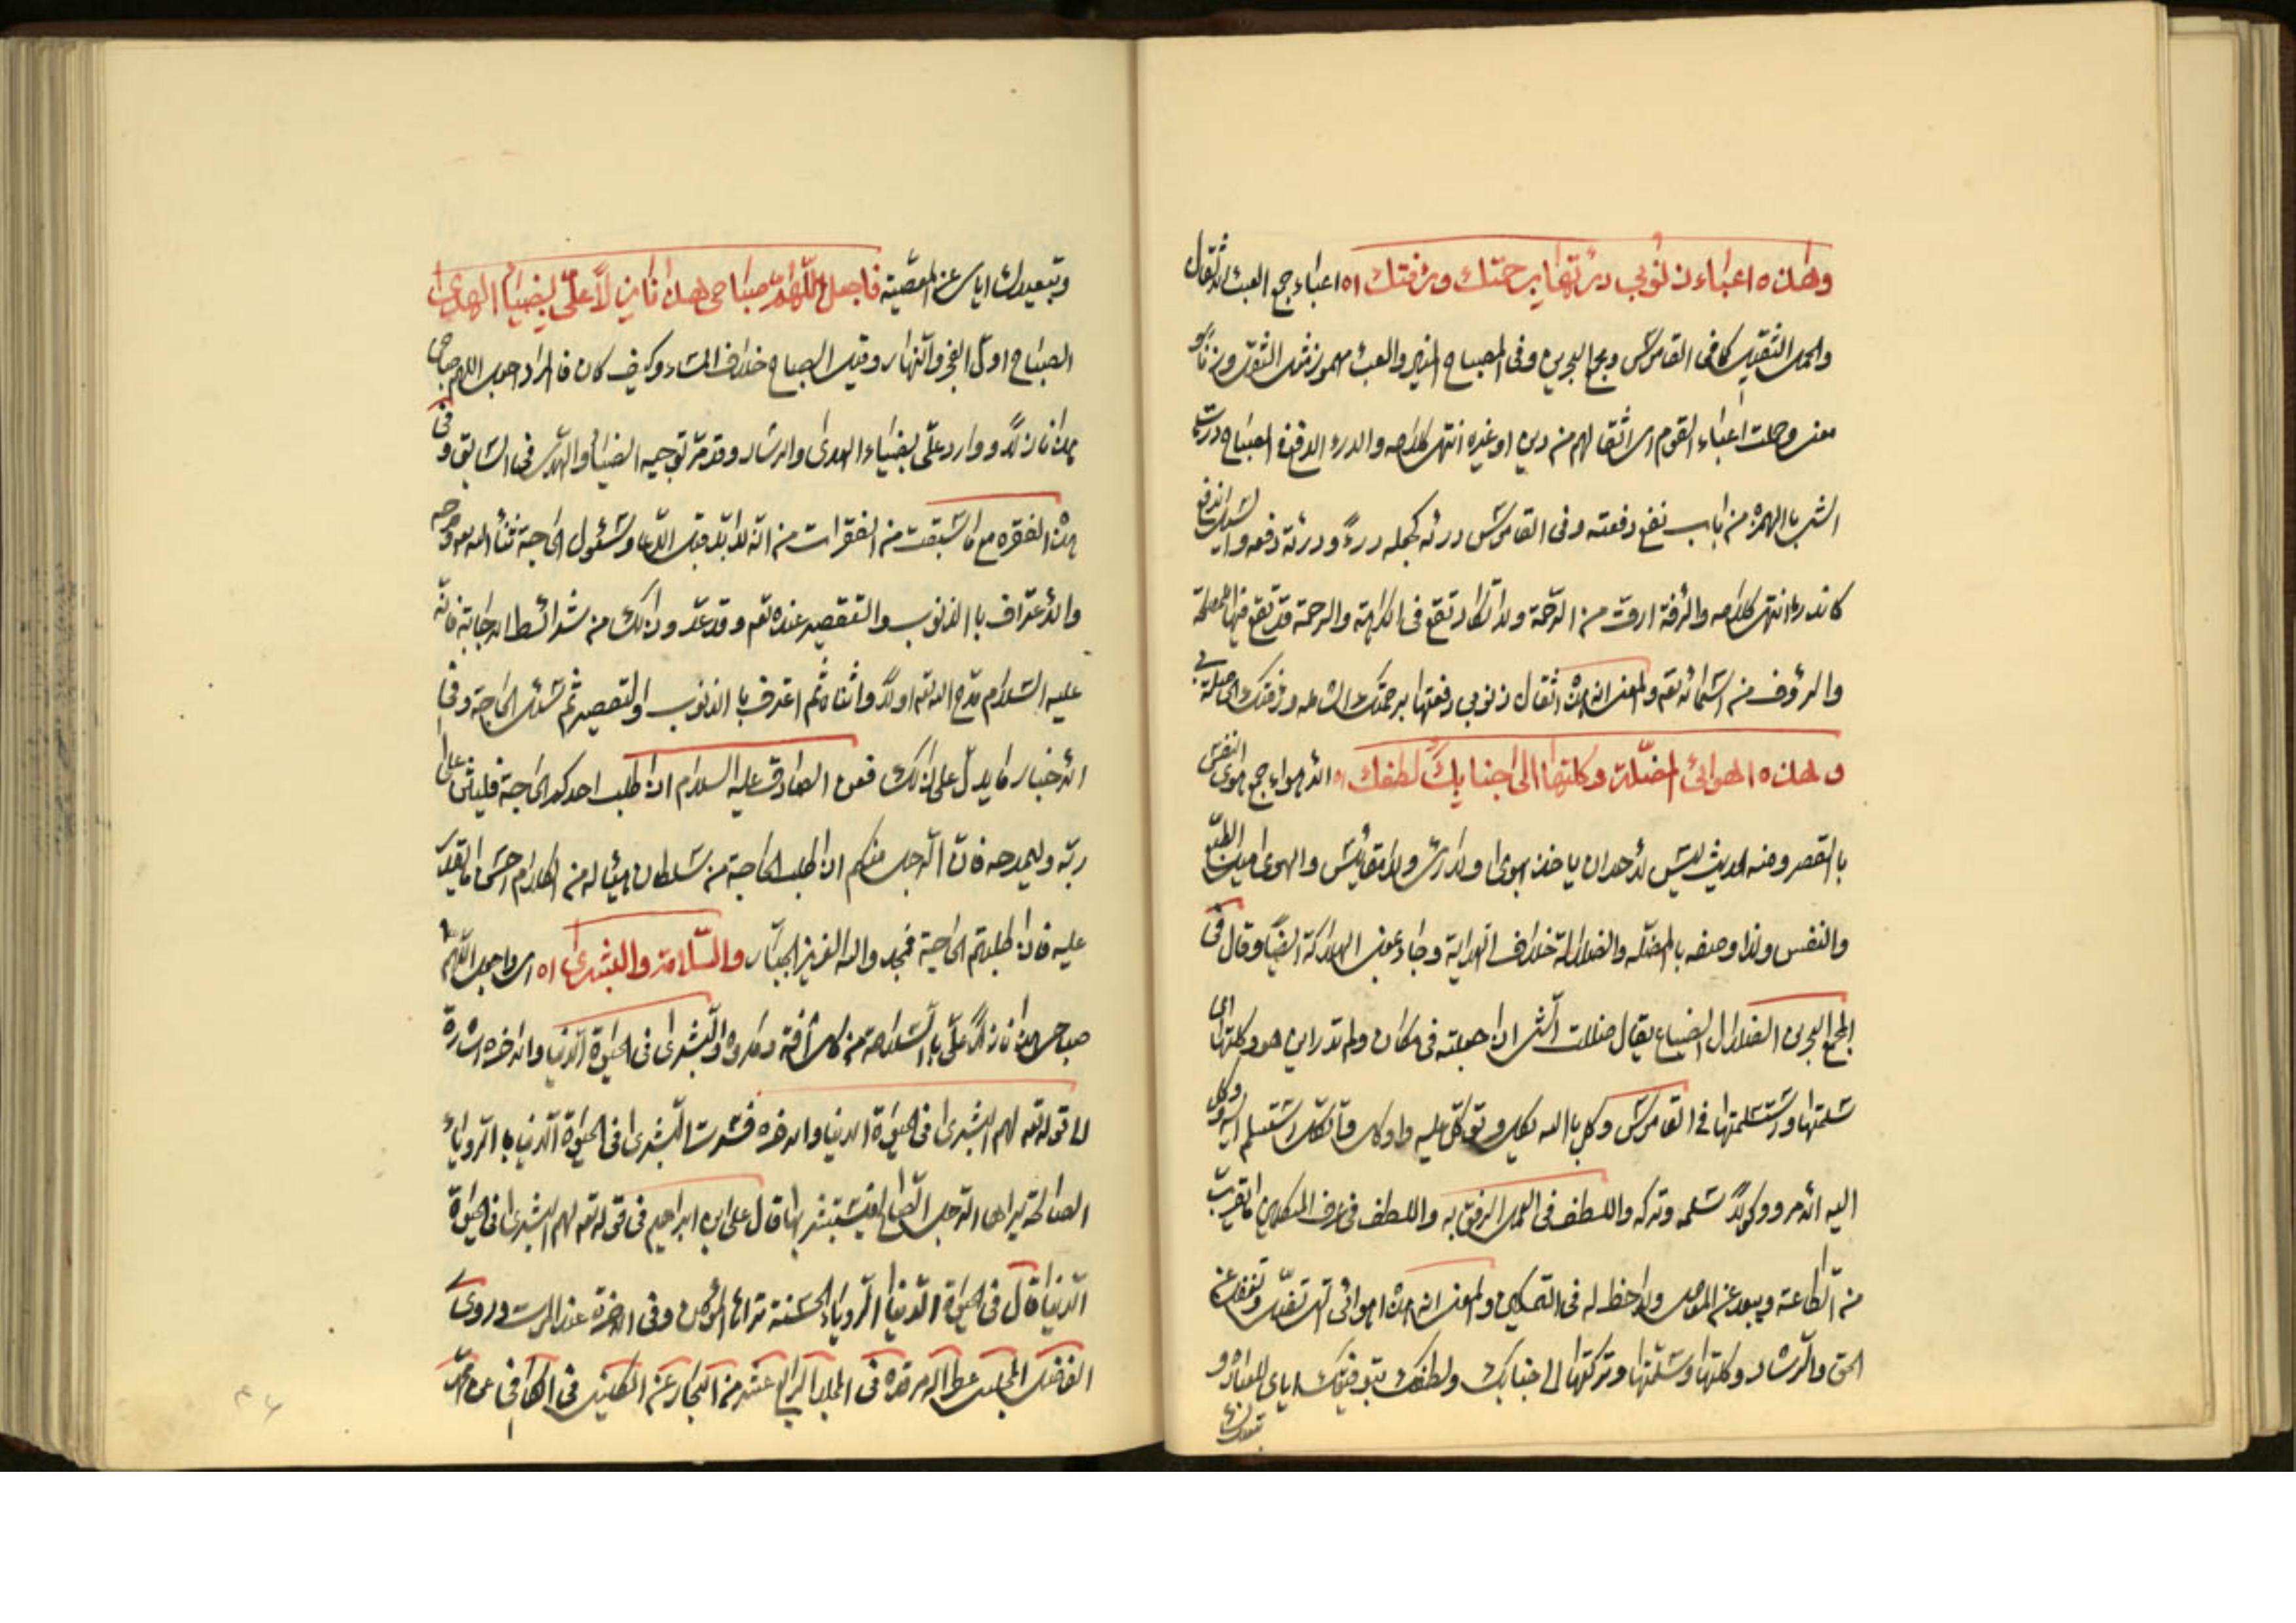 وهذه اعباء ذنوبي درئتها برحمتك ورئفتك اه اعباء جمع العبئ الاثقال
والحمل الثقيل كما فى القاموس ومجمع البحرين وفى المصباح المنير والعبئ مهموز مثل الثقل وزنا و
معنى وحملت اعباء القوم اى اثقالهم من دين او غيره انتهى كلامه والدرء الدفع فى المصباح درئت
الشئ باالهمزة من باب نفع دفعته وفى القاموس درئه كجعله درءً ودرئة دفعه و اندفع
كاندرء انتهى كلامه والرئفة ارق من الرحمة ولا تكاد تقع فى الكراهة والرحمة قد تقع فيها للمصلحة
والرؤف من اسمائه تعه والمعنى ان هذه اثقال ذنوبي دفعتها برحمتك الشاملة ورئفتك الحاصلة
وهذه اهوائي المضلة وكلتها الى جناب لطفك اه الاهواء جمع هوى النفس
باالقصر ومنه الحديث ليس لاحد ان ياخذ بهوى ولا راى ولا مقائيس والهوى ميل الطبع
والنفس ولذا وصفه باالمضلة والضلالة خلاف الهداية وجاء بمعنى الهلاكة ايضًا وقال فى
المجمع البحرين الضلال الضياع يقال ضللت الشئ اذا جعلته فى مكان ولم تدر اين هو وكلتها اى
سلمتها واستسلمتها فى القاموس وكل باالله يكل وتوكل عليه واوكل واتكل استسلم اليه ووكل
اليه الامر ووكولاً سلمه وتركه واللطف فى العمل الرفق به واللطف فى عرف المتكلمين ما يقرب
من الطاعة ويبعد عن المعصية ولا حظ له فى التمكين والمعنى ان هذه اهوائى التى تضل وتغفل عن
الحق والرشاد وكلتها وسلمتها وتركتها الى جنابك ولطفك بتوفيقك اياى للطاعة و
وتبعيدك اياى عن المعصية فاجعل اللهم صباحى هذا نازلاً علىّ بضياء الهدى
الصباح اول الفجر والنهار وقيل الصباح خلاف المساء وكيف كان فالمراد اجعل اللهم صباحى
هذا نازلاً ووارد علىّ بضياء الهدى والرشاد وقد مرّ توجيه الضياء والهدى فى السابق وفى
هذه الفقره مع ما سبقت من الفقرات من انه لا بد قبل الدعاء وسئول الحاجة ثناء الله ومدحه
والاعتراف باالذنوب والتقصير عنده تعه وقد عد ذلك من شرائط الاجابة فانه
عليه السلام مدح الله تعه اولاً واثناه ثم اعترف باالذنوب والتقصير ثم سئل الحاجة وفى
الاخبار ما يدل على ذلك فعن الصادق عليه السلام اذا طلب احدكم الحاجة فليثن على
ربه وليمدحه فان الرجل منكم اذا طلب الحاجة من سلطان هيئا له من الكلام احسن ما يقدر
عليه فاذا طلبتم الحاجة فمجدوا الله العزيز الجبار والسلامة والبشرى اه اى واجعل اللهم
صباحى هذا نازلاً علىّ باالسلامة من كل آفة ومكروه والبشرى فى الحيوة الدنيا والاخره اشارة
الى قوله تعه لهم البشرى فى الحيوة الدنيا والاخره فسّرت البشرى فى الحيوة الدنيا باالرؤياء
الصالحة يراها الرجل الصالح فيستبشر بها قال على ابن ابراهيم فى قوله تعه لهم البشرى فى الحيوة
الدنيا قال فى الحيوة الدنيا الرؤياء الحسنة تراها المؤمن وفى الاخرة عند الموت وروى
الفاضل المجلسى عطر الله مرقده فى المجلد الرابع عشر من البحار عن الكلينى فى الكافى عن